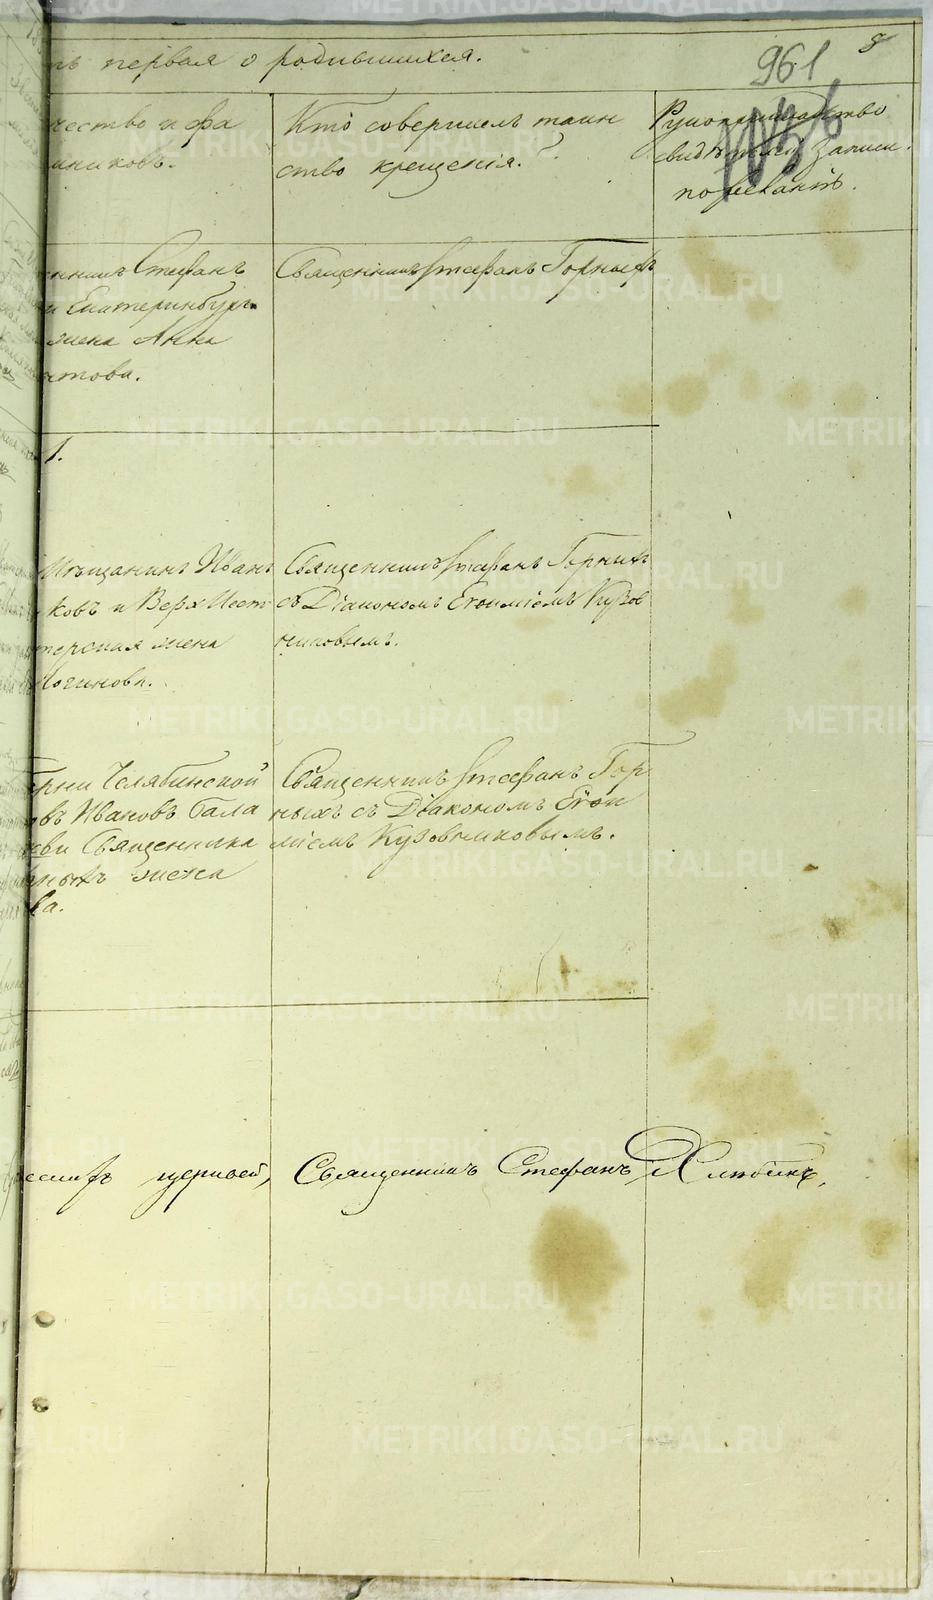 ть первая о родившихся.
961
8
чество и фа
миликовъ.
Кто совершилъ таин
ство крещенія.
Рукоприкладство
свидѣтелей записи
по желанію.
енникъ Стефанъ
и Екатеринбург
жена Анна
нтова.
Священникъ Стефанъ Горныхъ
1.
Мѣщанинъ Иванъ
ковъ и Верх Исет
терская жена
Логинова.
Священникъ Стефанъ Горныхъ
съ Діакономъ Евѳиміемъ Кузов
никовымъ.
Челябинской
овъ Ивановъ Бала
кви Священника
рныхъ жена
ва.
Священникъ Стефанъ Гор
ныхъ съ Діакономъ Евѳи
міемъ Кузовниковымъ.
церквей, Священникъ Стефанъ Хлѣбинъ,
METRIKI.GASO-URAL.RU